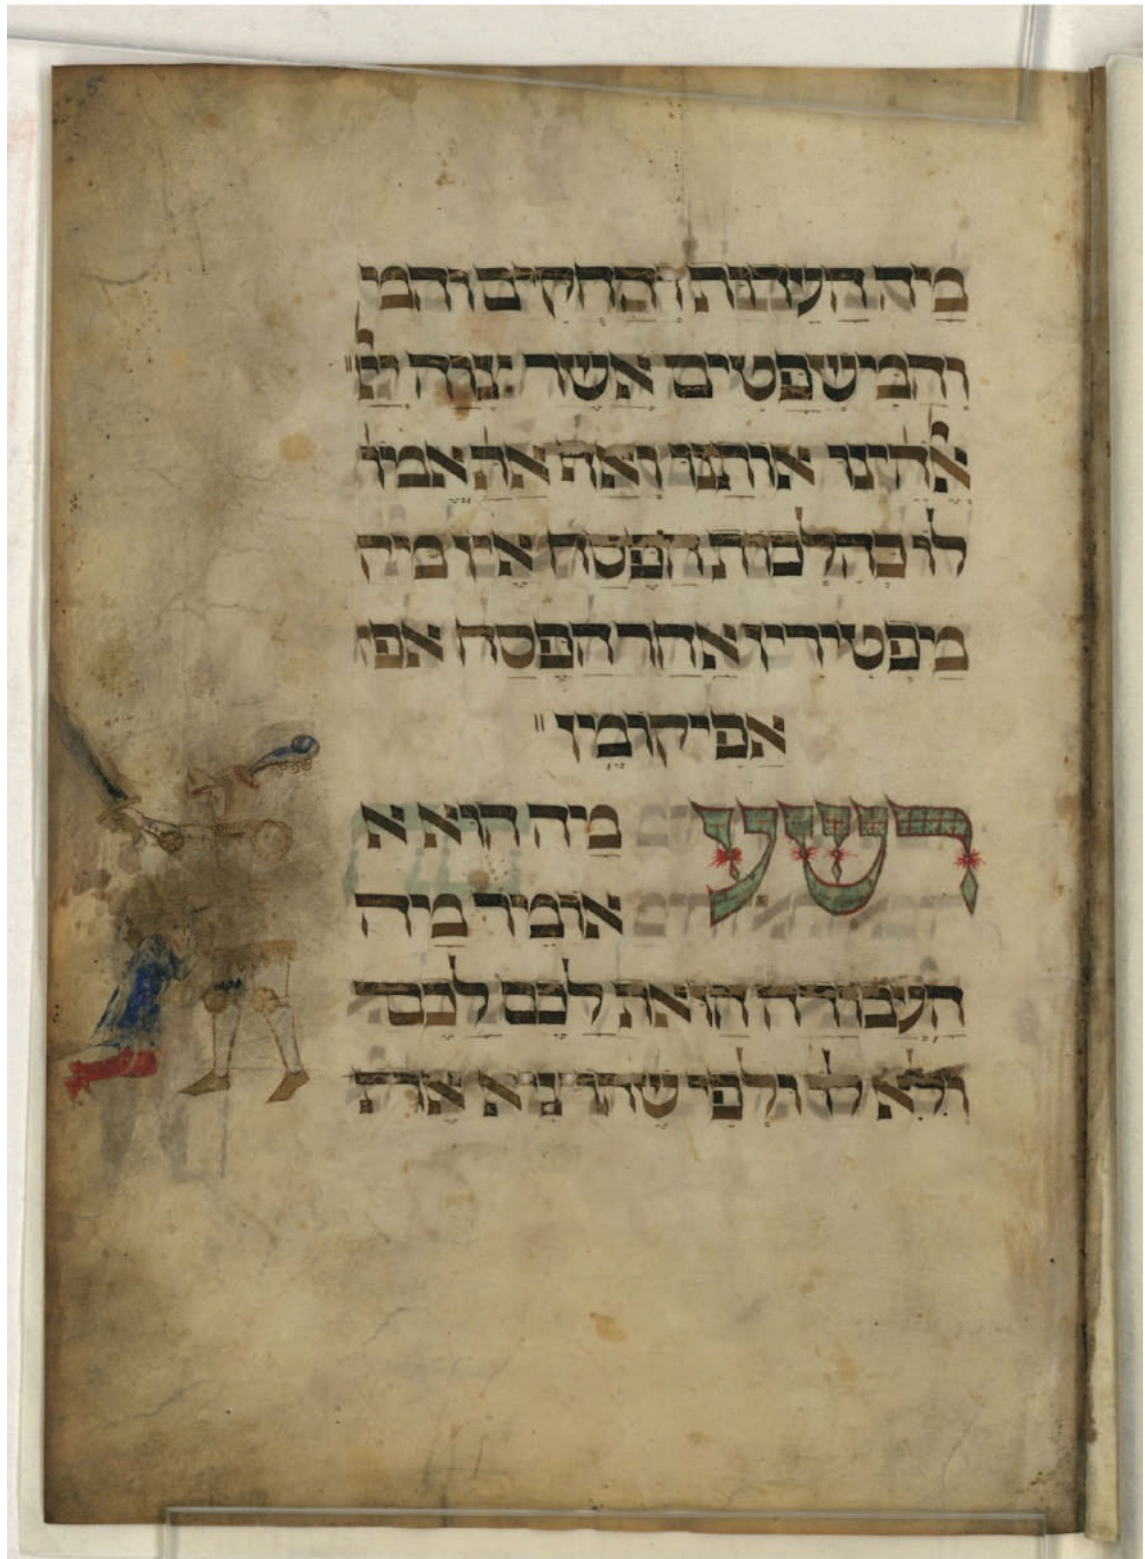 5
מה העדות והחקים והמ
והמשפטים אשר צוה יי֗
אלהינו אותנו ואף אתה אמור
לו כהלכות הפסח אין
מפטירין אחר הפסח אפי
אפיקומין "
רשע מה הוא א
אומר מה
העבודה הזאת לכם לכם
ולא לו ולפי שהוציא את